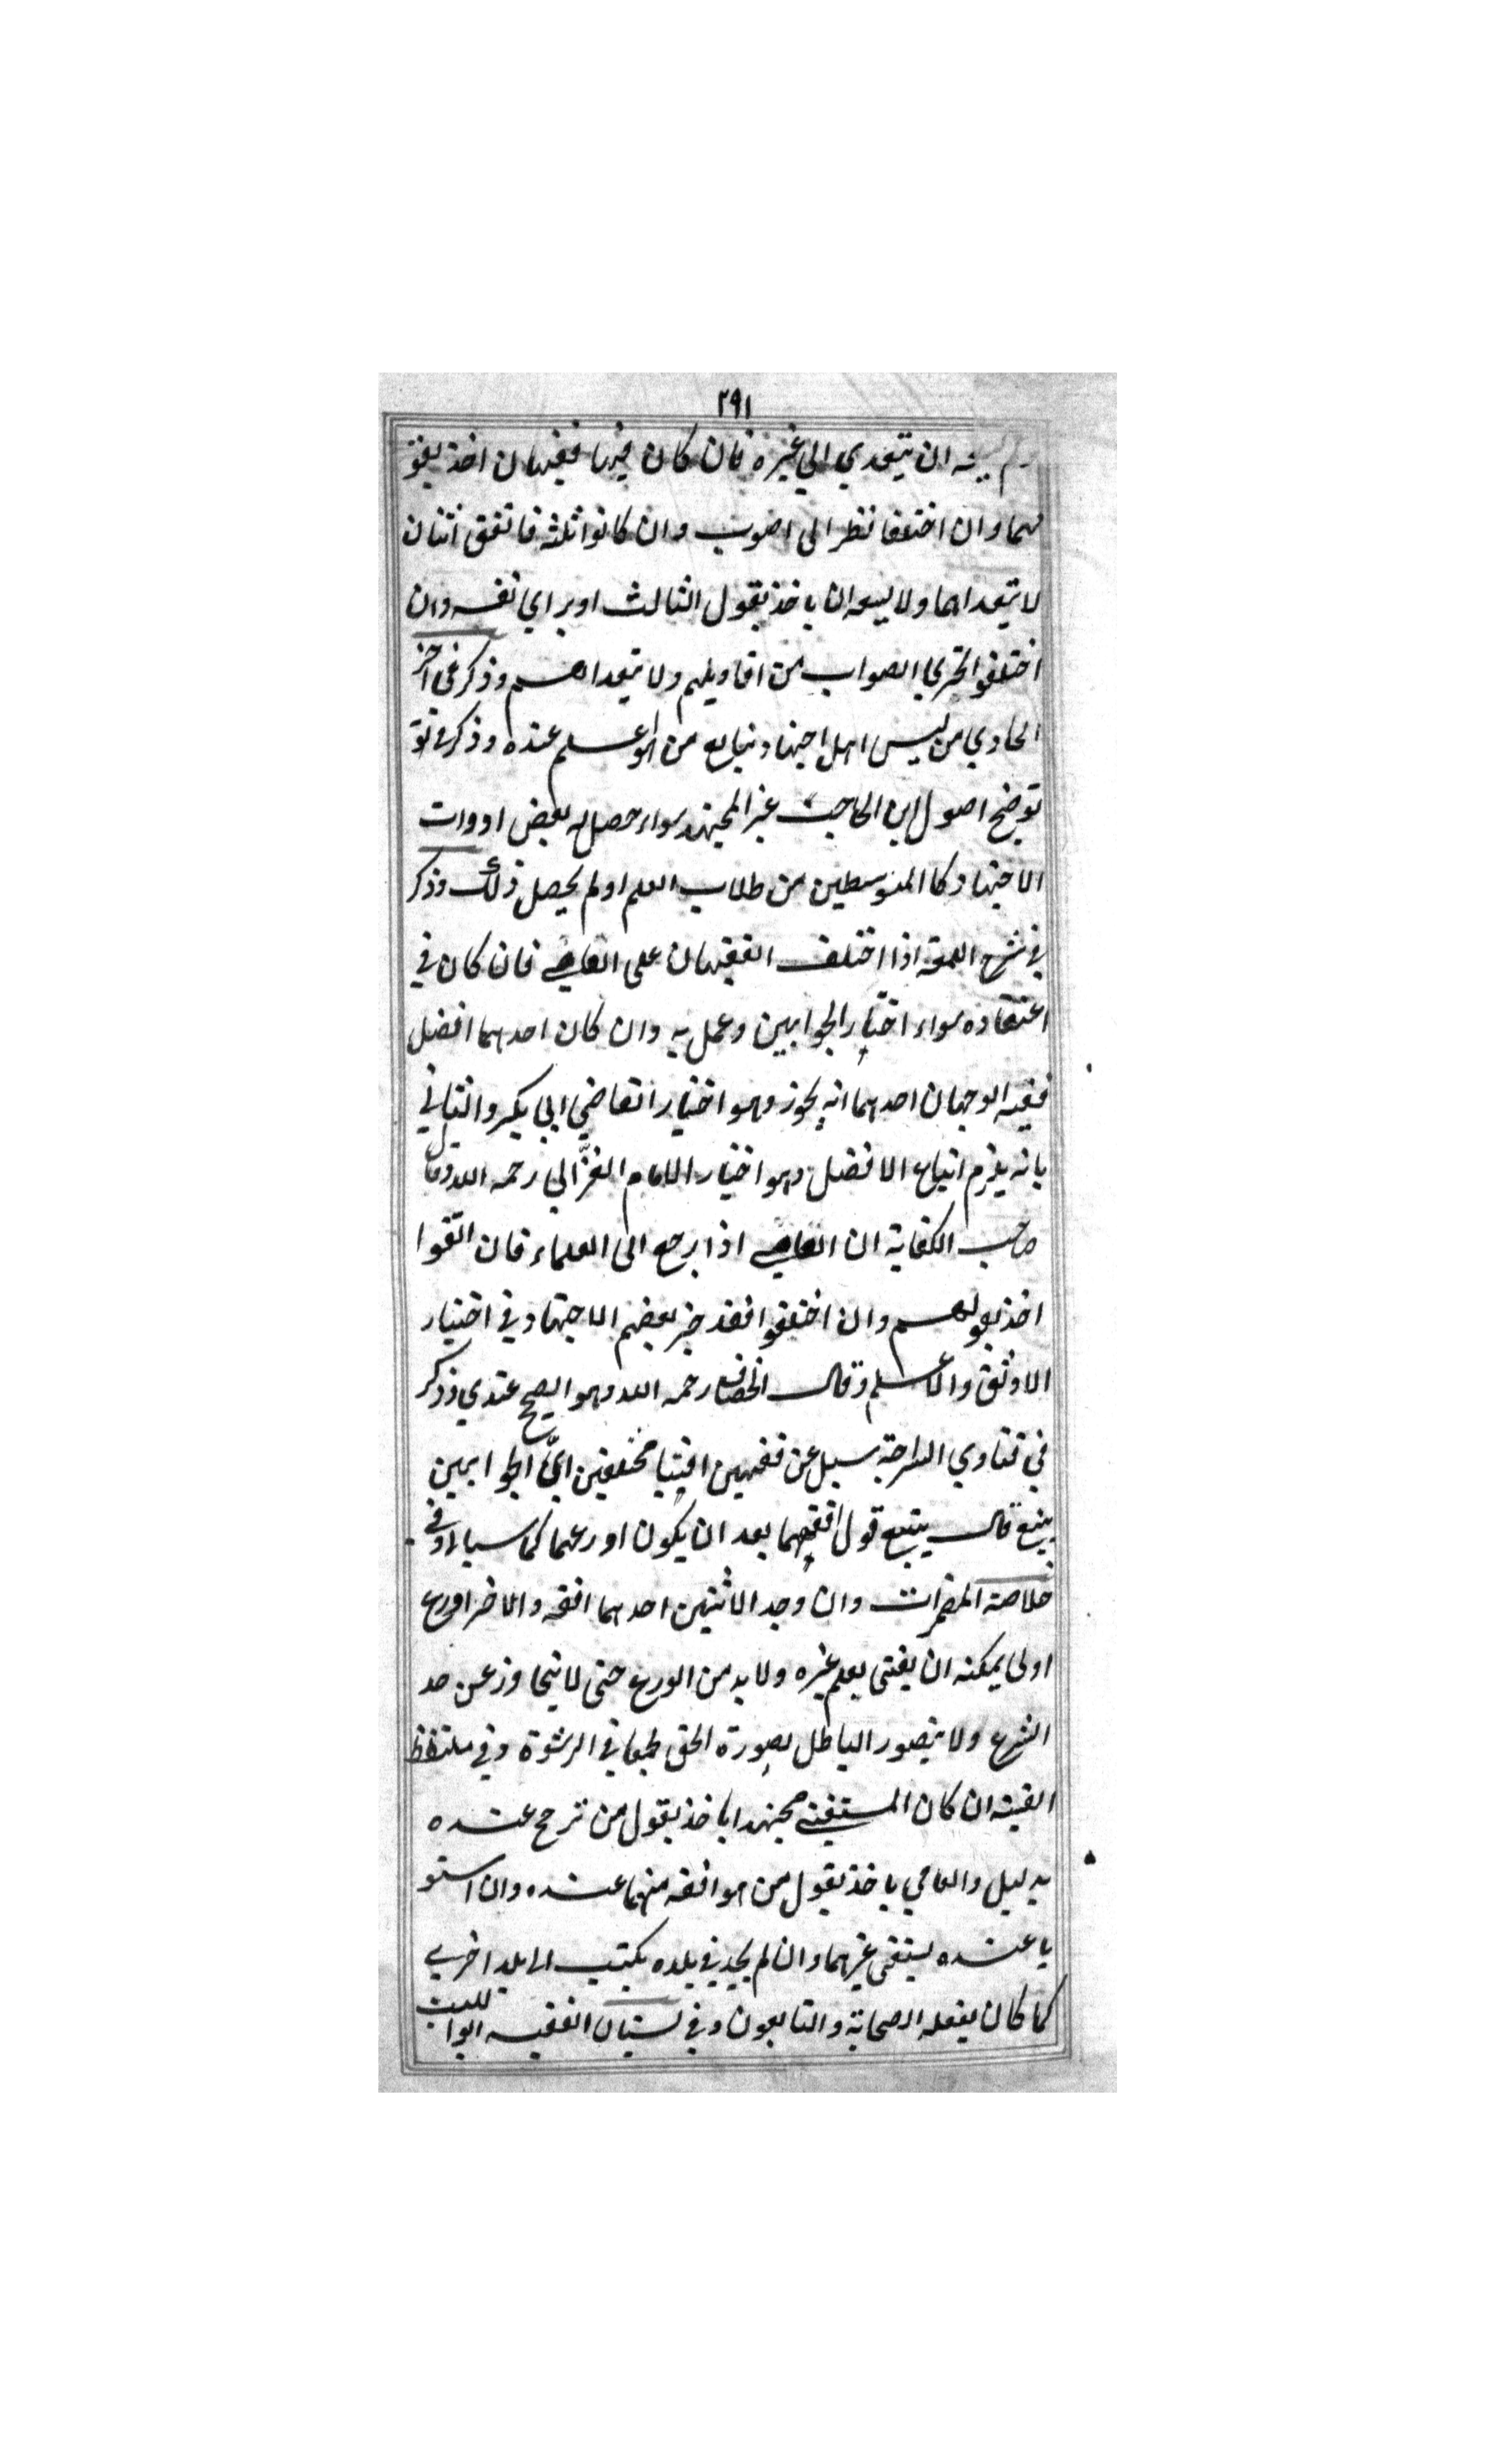 ٢٩١
ان يتعدي الي غيره فان كان فيها فقيهان اخذ بقو
لهما وان اختلفا نظر الى اصوب وان كانوا ثلثه فاتفق اثنان
لا يتعداهما ولا يسعه ان ياخذ بقول الثالث او براي نفسه وان
اختلفوا تحري الصواب من اقاويلهم ولا يتعداهم وذكر في اخر
الحاوي من ليس اهل اجتهاد يتابع من هو اعلم عنده وذكر في
توضح اصول ابن الحاجب غير المجتهد سواء حصل له بعض ادوات
الاجتهاد كالمتوسطين من طلاب العلم او لم يحصل ذلك وذكر
في شرح اللمعه اذا اختلف الفقيهان على القاضي فان كان في
اعتقاده سواء اختيار الجوابين وعمل به وان كان احدهما افضل
ففيه الوجهان احدهما انه يجوز وهو اختيار القاضي ابي بكر والثاني
بانه يلزم اتباع الافضل وهو اختيار الامام الغزّالي رحمه الله وقال
صاحب الكفاية ان القاضي اذا رجع الى العلماء فان اتفقوا
اخذ بقولهم وان اختلفوا فقد خير بعضهم الاجتهاد في اختيار
الاوثق والاعلم وقال الخصاف رحمه الله وهو الصحيح عندي وذكر
في فتاوي السراجية سيل عن فقيهين افتيا مختلفين ايّ الجوابين
يتبع قال يتبع قول افقههما بعد ان يكون اورعهما كما سيال وفي
خلاصة المضمرات وان وجد الاثنين احدهما افقه والاخر اورع
اولى يمكنه ان يفتى بعلم غيره ولا بد من الورع حتى لا يتجاوز عن حد
الشرع ولا يتصور الباطل بصورة الحق طمعا في الرشوة وفي ملتقط
القنيه ان كان المستفتي مجتهدا ياخذ بقول من ترجح عنده
بدليل والعامي ياخذ بقول من هو افقه منهما عنده وان استو
يا عنده يستفتى غيرهما وان لم يجد في بلده يكتب الى بلد اخري
كما كان يفعله الصحابة والتابعون وفي بستان الفقيه ابو الليث